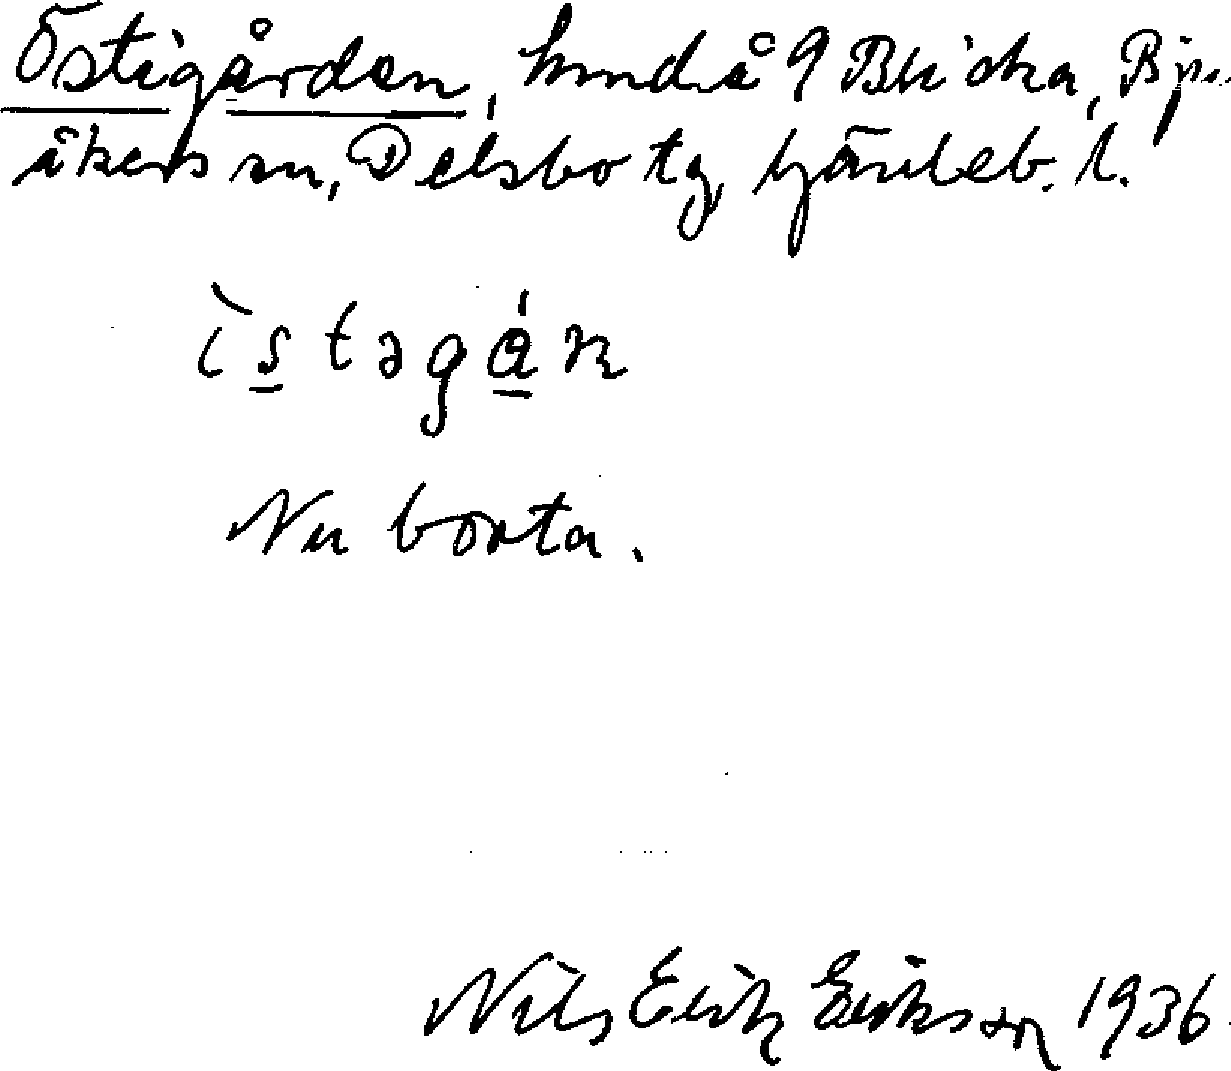 Östigården, hmd å 9 Blicka, Bju-
råkers sn, Delsbo tg, Gävleb. l.
ìstəgán
Nu borta.
Nils Erik Eriksson 1936